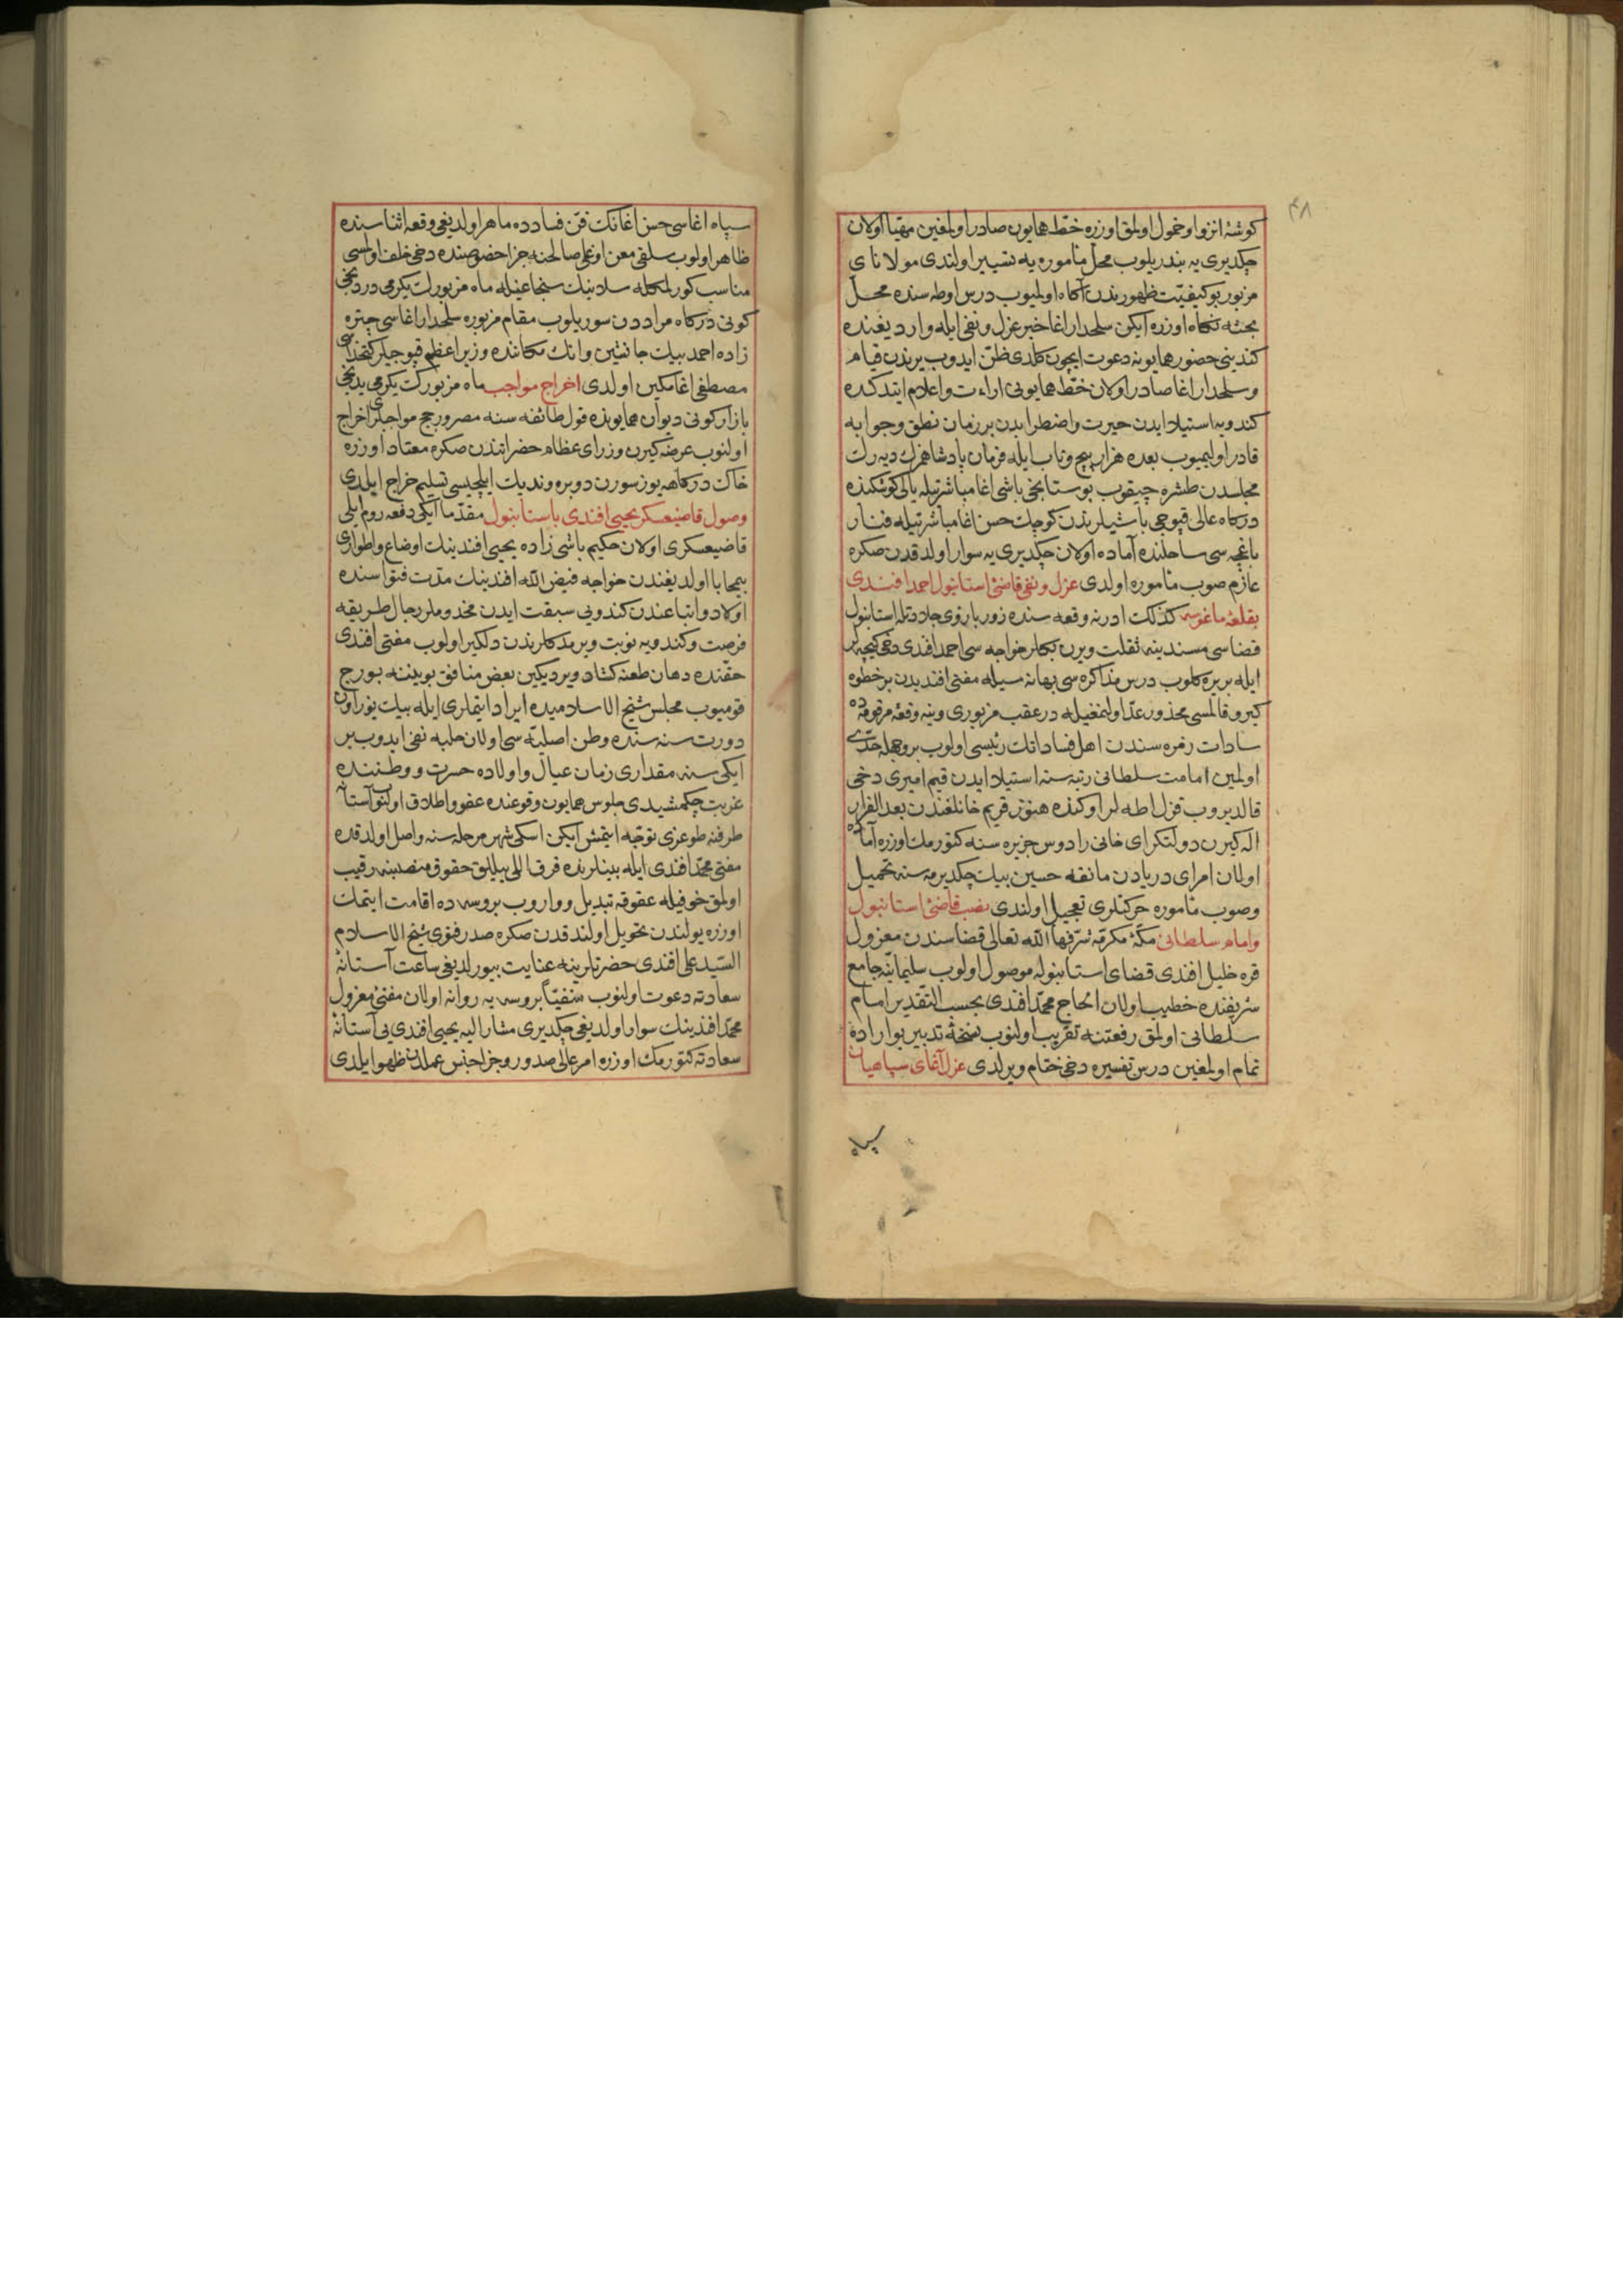 ٤٨
كوشۀ انزوا و خمول اولمق اوزره خطّ همايون صادر اولمغين مهيّا اولان
چكديرى يه بندريلوب محلّ مأموره يه تسيير اولندى مولاناى
مزبور بو كيفيّت ظهورندن آكاه اولميوب درس اوطه سنده محلّ
بحثه نكاه اوزره ايكن سلحدار اغا خبر عزل و نفى ايله وارديغنده
كندينى حضور همايونه دعوت ايچون كلدى ظنّ ايدوب يرندن قيام
و سلحدار اغا صادر اولان خطّ همايونى اراءت و اعلام ايتدكده
كندويه استيلا ايدن حيرت و اضطرابدن بر زمان نطق و جوابه
قادر اوليميوب بعده هزار پيچ و تاب ايله فرمان پادشاهمزك ديه رك
مجلسدن طشره چيقوب بوستانجى باشى اغا مباشرتيله يالى كوشكنده
دركاه عالى قپوجى باشيلرندن كوچك حسن اغا مباشرتيله فنار
باغچه سى ساحلنده آماده اولان چكديرى يه سوار اولدقدن صكره
عازم صوب مأموره اولدى عزل و نفى قاضئ استانبول احمد افندى
بقلعۀ ماغوسه كذلك ادرنه وقعه سنده زور بازوى جلادتله استانبول
قضاسى مسندينه ثقلت ويرن بكلر خواجه سى احمد افندى دخى كيجه لر
ايله بريره كلوب درس مذاكره سى بهانه سيله مفتى افنديدن بر خطوه
كيرو قالمسى محذور عدّ اولنمغيله در عقب مزبورى وينه وقعۀ مرقومه ده
سادات زمره سندن اهل فساداتك رئيسى اولوب بر وجهله حدّى
اولمين امامت سلطانى رتبه سنه استيلا ايدن قيم اميرى دخى
قالديروب قزل اطه لر اوكنده هنوز قريم خانلغندن بعد الفرار
اله كيرن دولتكراى خانى رادوس جزيره سنه كتورمك اوزره آماده
اولان امراى دريادن مانقه حسين بيك چكديرمه سنه تحميل
و صوب مأموره حركتلرى تعجيل اولندى نصب قاضئ استانبول
و امام سلطانى مكّۀ مكرمّه شرّفها الله تعالى قضاسندن معزول
قره خليل افندى قضاى استانبوله موصول اولوب سليمانيّه جامع
شريفنده خطيب اولان الحاج محمّد افندى بحسب التقدير امام
سلطانى اولمق رفعتنه تقريب اولنوب نسخۀ تدبير بو اراده
تمام اولمغين درس تفسيره دخى ختام ويرلدى عزل آغاى سپاهيان
سپاه
سپاه اغاسى حسن اغانك فنّ فسادده ماهر اولديغى وقعه اثناسنده
ظاهر اولوب سلفى معن اوغلى صالحنه جزا خصوصنده دخى خلف اولمسى
مناسب كورلمكله سلامنك سنجاغيله ماه مزبورك يكرمى دردنجى
كونى دركاه مراددن سوريلوب مقام مزبوره سلحدار اغاسى چتره
زاده احمد بيك جانشين و انك مكاننده وزير اعظم قپوجيلر كتخداسى
مصطفى اغا مكين اولدى اخراج مواجب ماه مزبورك يكرمى يدنجى
بازار كونى ديوان همايونده قول طائفه سنه مصر و رجج مواجبلرى اخراج
اولنوب عرضه كيرن وزراى عظام حضراتندن صكره معتاد اوزره
خاك دركاهه يوز سورن دوبره وندیك ايلچيسى تسليم خراج ايلدى
وصول قاضيعسكر يحيى افندى باستانبول مقدّما ايكى دفعه روم ايلى
قاضيعسكرى اولان حكيم باشى زاده يحيى افندينك اوضاع و اطوارى
بيمحابا اولديغندن خواجه فيض الله افندينك مدّت فتواسنده
اولاد و اتباعندن كندويى سبقت ايدن مخدوملر رجال طريقه
فرصت و كندويه نوبت ويرمدكلرندن دلكير اولوب مفتى افندى
حقنده دهان طعنه كشاد ويرديكين بعض منافق بوينينه بورج
قوميوب مجلس شيخ الاسلاميده ايراد ايتملرى ايله بيك يوز اون
دورت سنه سنده وطن اصليّه سى اولان حلبه نفى ايدوب بر
ايكى سنه مقدارى زمان عيال و اولاده حسرت و وطننده
غربت چكمشيدى جلوس همايون وقوعنده عفو و اطلاق اولنوب آستانه
طرفنه طوغرى توجّه ايتمش ايكن اسكى شهر مرحله سنه واصل اولدقده
مفتى محمّد افندى ايله بينلرنده فرق اللى ييللق حقوق منصبنه رقيب
اولمق خوفيله عقوقه تبديل و واروب بروسه ده اقامت ايتمك
اوزره يولندن تحويل اولندقدن صكره صدر فتوى شيخ الاسلام
السّيد على افندى حضرتلرينه عنايت بيورلديغى ساعت آستانۀ
سعادته دعوت اولنوب منفيّا بروسه يه روانه اولان مفتئ معزول
محمّد افندينك سوار اولديغى چكديرى مشار اليه يحيى افندى يى آستانۀ
سعادته كتورمك اوزره امر عالى صدور و جزا جنس عملدن ظهور ايلدى